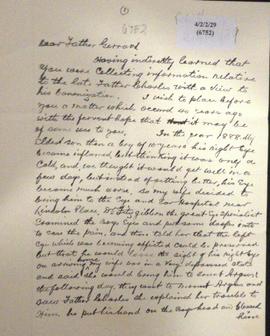 (1)
6752
4/2/2/29
(6752)
Dear Father Gerrard
Having indirectly learned that
you were collecting information relative
to the late Father Charles with a view to
his Canonization. I wish to place before
you a matter which occured 40 years ago
with the fervent hope that it may be
of some use to you. In the year 1888 My
eldest son then a boy of 10 years his right Eye
became inflamed but thinking it was only a
cold, and we thought it would get well in a
few days, but instead of getting better, his Eye
became much worse, so my wife decided to
bring him to the Eye and Ear Hospital near
Lincoln Place, Dr Fitzgibbon the great Eye specialist
Examined the boys Eye and put some drops into
to ease the pain, and then told her that the left
Eye which was becoming effected could be preserved
but that he would loose the sight of his right Eye
on arriving my wife was in a very distressed state
and said she would bring him to Mount Argus
the following day, they went to Mount Argus and
saw Father Charles she explained her trouble to
Him he put his hand on the boys head and blessed
him